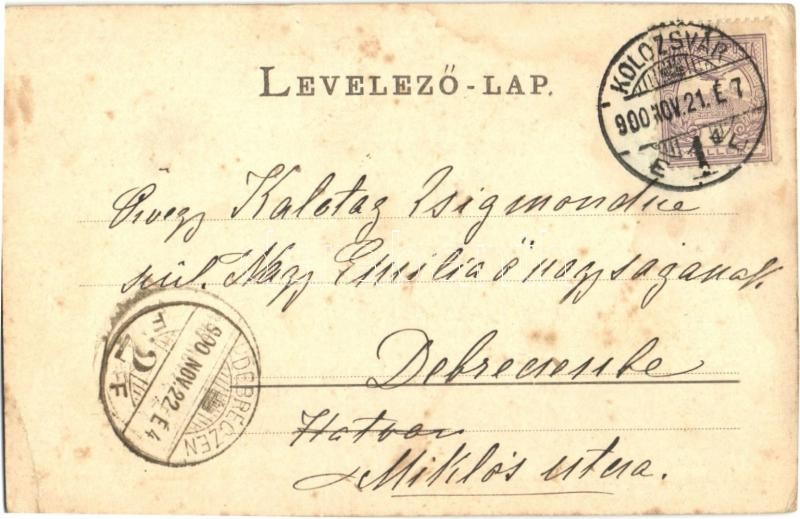 LEVELEZŐ-LAP.
KOLOZSVÁR
900 NOV. 21. É. 7
1
Özvegy Kalotay Zsigmondne
szül. Nagy Emilia ő nagysaganak
Debrecenbe
Hatvan
Miklós utca.
DEBRECZEN
900 NOV. 22. É 4